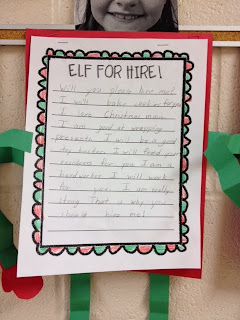 ELF FOR HIRE!
Will you please hire me?
I will bake cookies for you
Christmas
I am good at wrapping
presents. I will be a good
I will feed your
reindeers for you. I am a
hard worker. I will work
for you. I am really
strong. That is why you
should hire me!